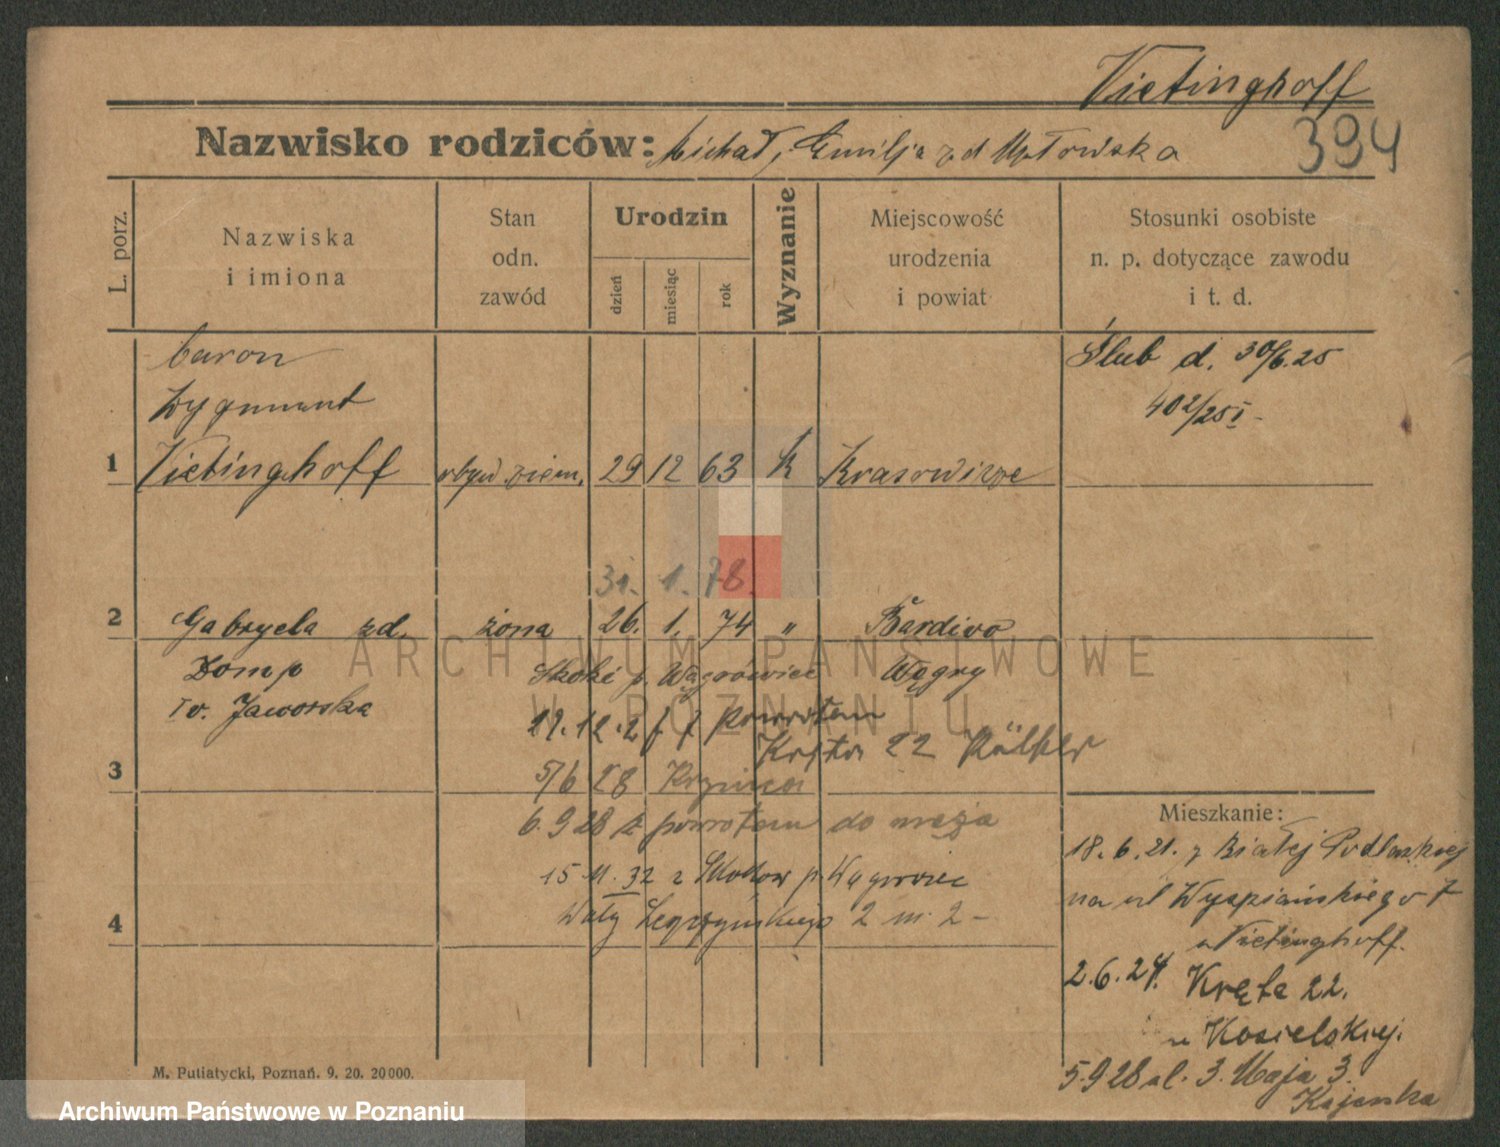 Vietinghoff
394
Nazwisko rodziców: Michał, Emilja z d
L. porz.
Nazwiska
i imiona
Stan
odn.
zawód
Urodzin
dzień
miesiąc
rok
Wyznanie
Miejscowość
urodzenia
i powiat
Stosunki osobiste
n. p. dotyczące zawodu
i t. d.
baron
Zygmunt
1 Vietinghoff obyw. ziem. 29 12 63 K
Ślub d. 30/6.25
402/25 I
31. 1. 78.
2 Gabryela zd. żona 26. 1. 74 "
Domp
Iv. Jaworska
Skoki p. Wągrówiec Węgry
powrotem
22
3
5/6 28 Krynica
6. 9 28 z powrotem do męża
15 11. 32 z Skoków p. Wągrowiec
4
Wały 2 m. 2 -
Mieszkanie:
18. 6. 21. z Białej Podlaskiej
na ul Wyspiańskiego 7
u Vietinghoff.
2. 6. 24. Kręta 22.
u Kosielskiej.
5.9 28 ul. 3. Maja 3.
Kajanska
M. Putiatycki, Poznań. 9. 20. 20000.
ARCHIWUM PAŃSTWOWE
W POZNANIU
Archiwum Państwowe w Poznaniu